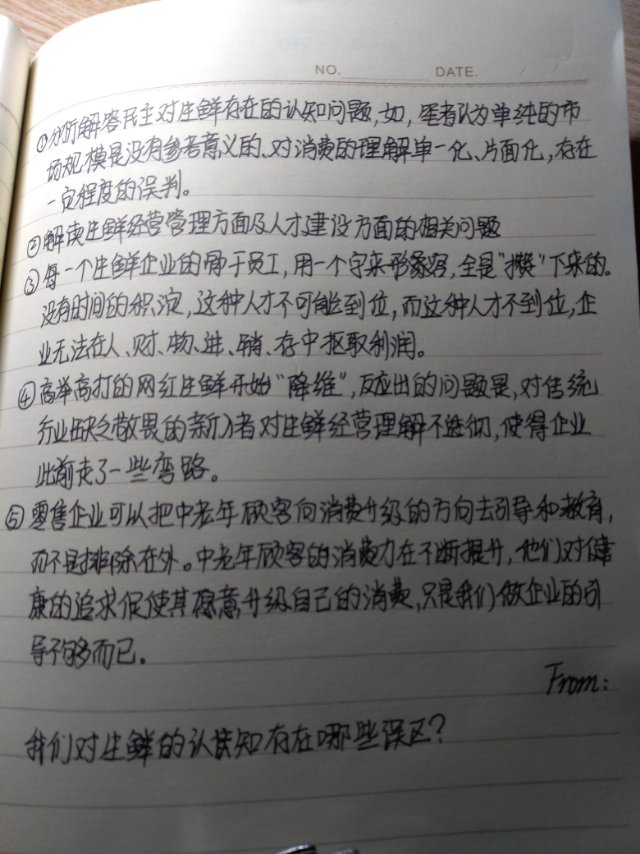 NO. DATE.
①分析解客民主对生鲜存在的认知问题,如,笔者认为单纯的市
场规模是没有参考意义的、对消费的理解单一化、片面化,存在
一定程度的误判。
②解读生鲜经营管理方面及人才建设方面的相关问题
③每一个生鲜企业的骨干员工,用一个字来形象容,全是"攒"下来的。
没有时间的积淀,这种人才不可能到位,而这种人才不到位,企
业无法在人、财、物、进、销、存中抠取利润。
④高举高打的网红生鲜开始"降维",反应出的问题是,对传统
行业缺乏敬畏的新入者对生鲜经营理解不透彻,使得企业
此前走了一些弯路。
⑤零售企业可以把中老年顾客向消费升级的方向去引导和教育,
而不是排除在外。中老年顾客的消费力在不断提升,他们对健
康的追求促使其愿意升级自己的消费,只是我们做企业的引
导不够多而已。
From:
我们对生鲜的认识知存在哪些误区?